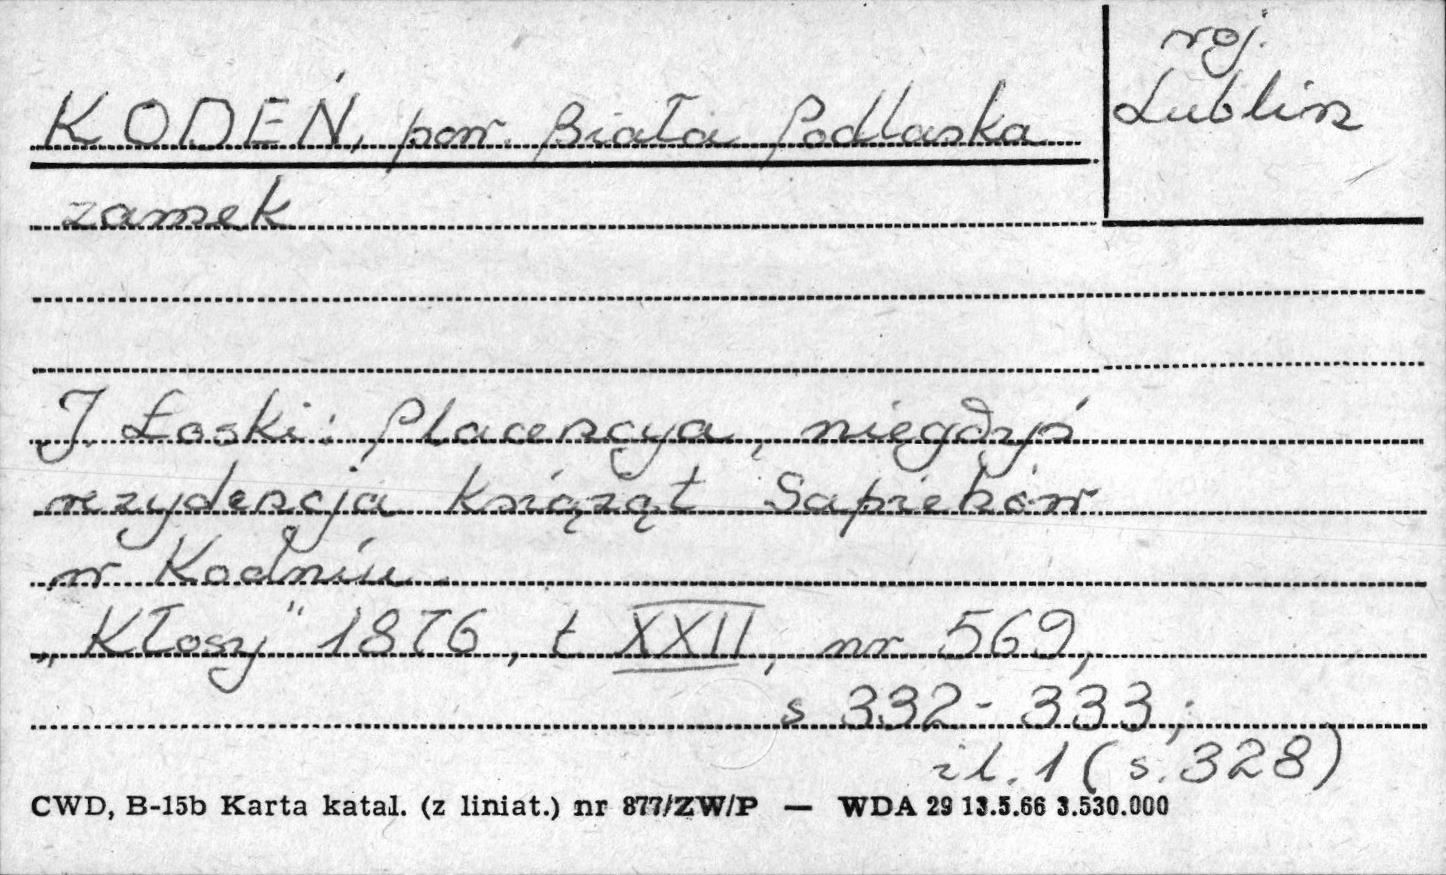 woj.
Lublin
KODEŃ, pow. Biała Podlaska
zamek
J. Łoski: Placencya, niegdyś
rezydencja książąt Sapiehów
w Kodniu.
„Kłosy" 1876, t XXII, nr. 569,
s 332-333;
il. 1 (s. 328)
CWD, B-15b Karta katal. (z liniat.) nr 877/ZW/P — WDA 29 13.5.66 3.530.000